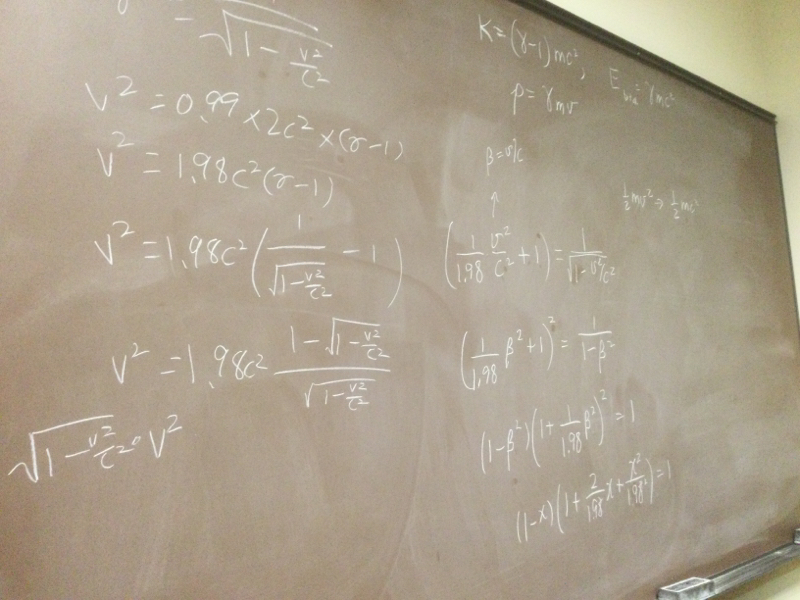 = 1/√(1 − v²/c²)
v² = 0.99 × 2c² × (γ−1)
v² = 1.98c²(γ−1)
v² = 1.98c² (1/√(1−v²/c²) − 1)
v² = 1.98c² (1−√(1−v²/c²))/√(1−v²/c²)
√(1−v²/c²) · v²
K = (γ−1)mc²,
p = γmv
E = γmc²
β = v/c
↑
½mv² → ½mc²
(1/1.98 v²/c² + 1) = 1/√(1−v²/c²)
(1/1.98 β² + 1)² = 1/(1−β²)
(1−β²)(1 + 1/1.98 β²)² = 1
(1−x)(1 + 2/1.98 x + x²/1.98²) = 1